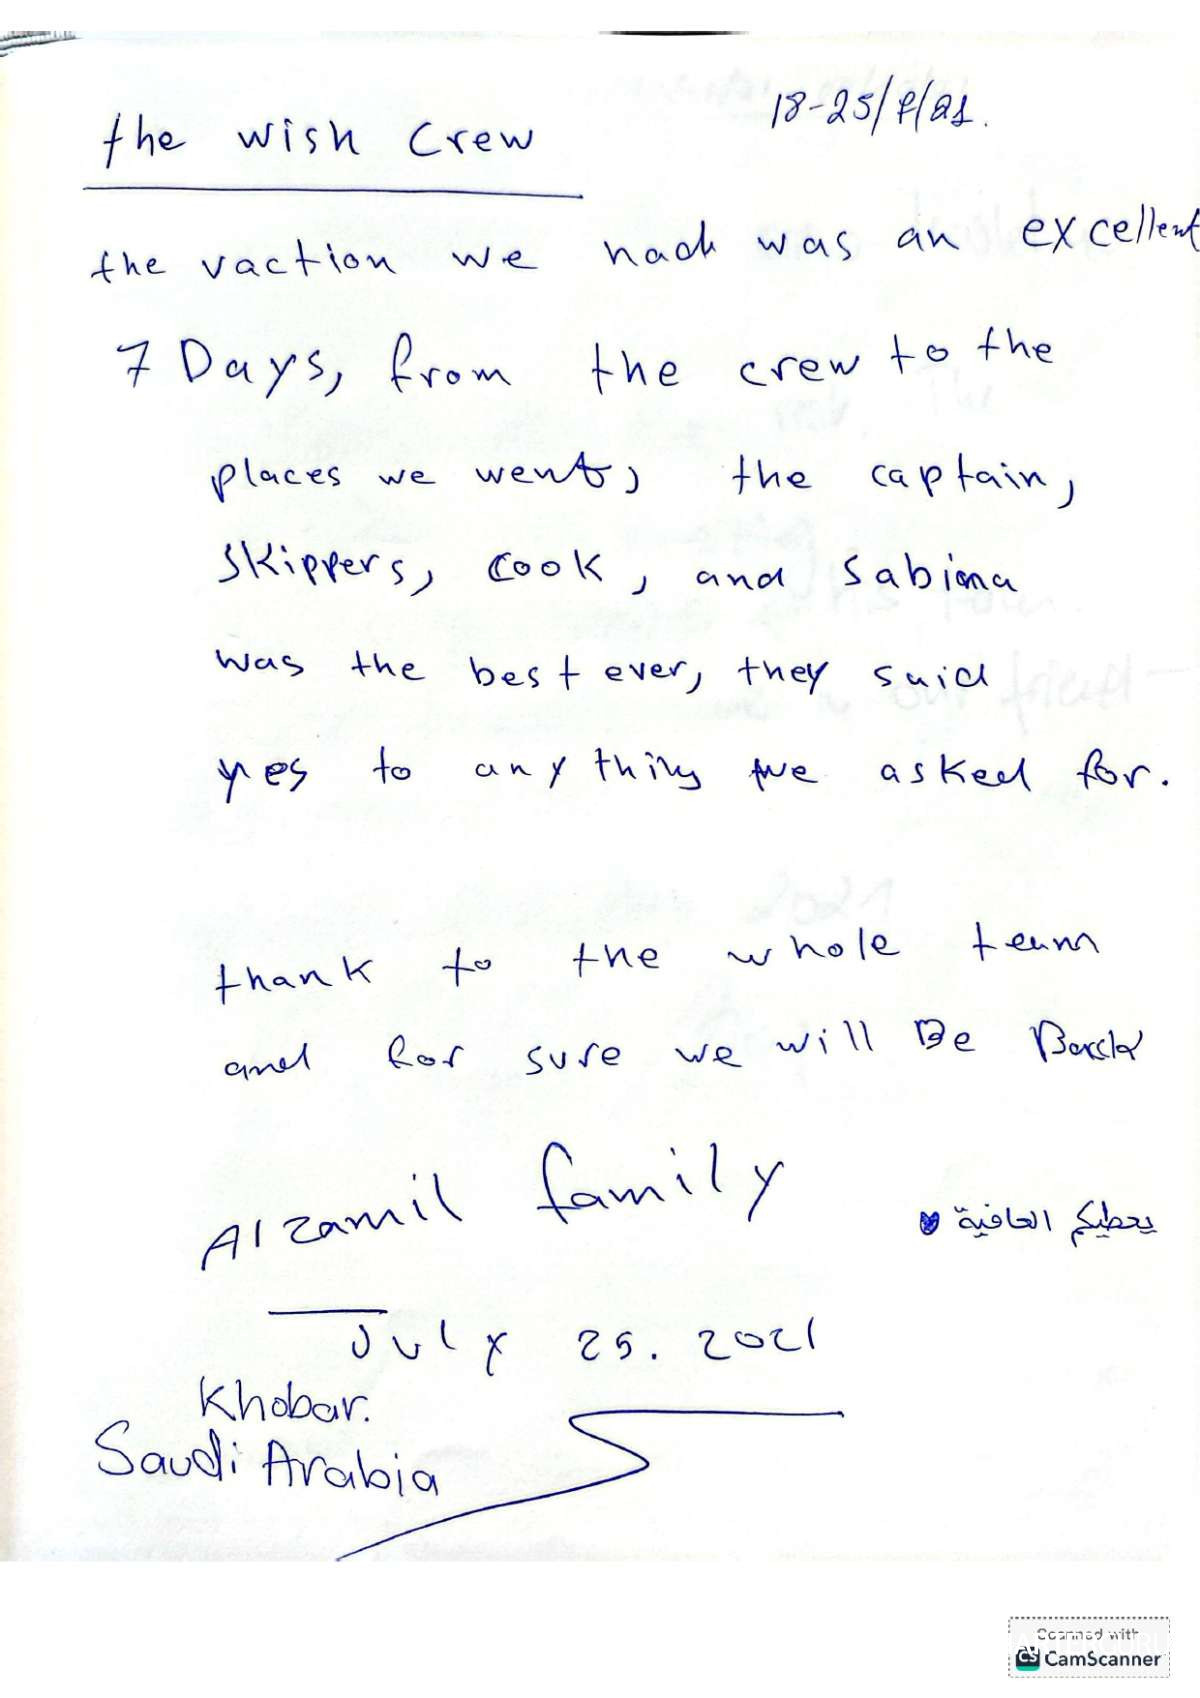 the wish crew
18-25/7/21.
the vaction we had was an excellent
7 Days, from the crew to the
places we went, the captain,
skippers, cook, and Sabina
was the best ever, they said
yes to any thing we asked for.
thank to the whole team
and for sure we will Be Back
Alzamil family
يعطيكم العافية
July 25. 2021
Khobar.
Saudi Arabia
Scanned with
CS CamScanner